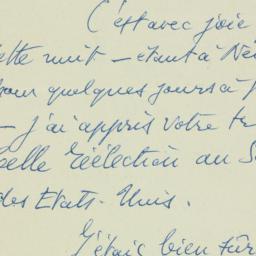 C'est avec joie
ette nuit – étant à Né
our quelques jours à
– j'ai appris votre tr
belle réélection au S
des Etats-Unis.
J'étais bien sûr